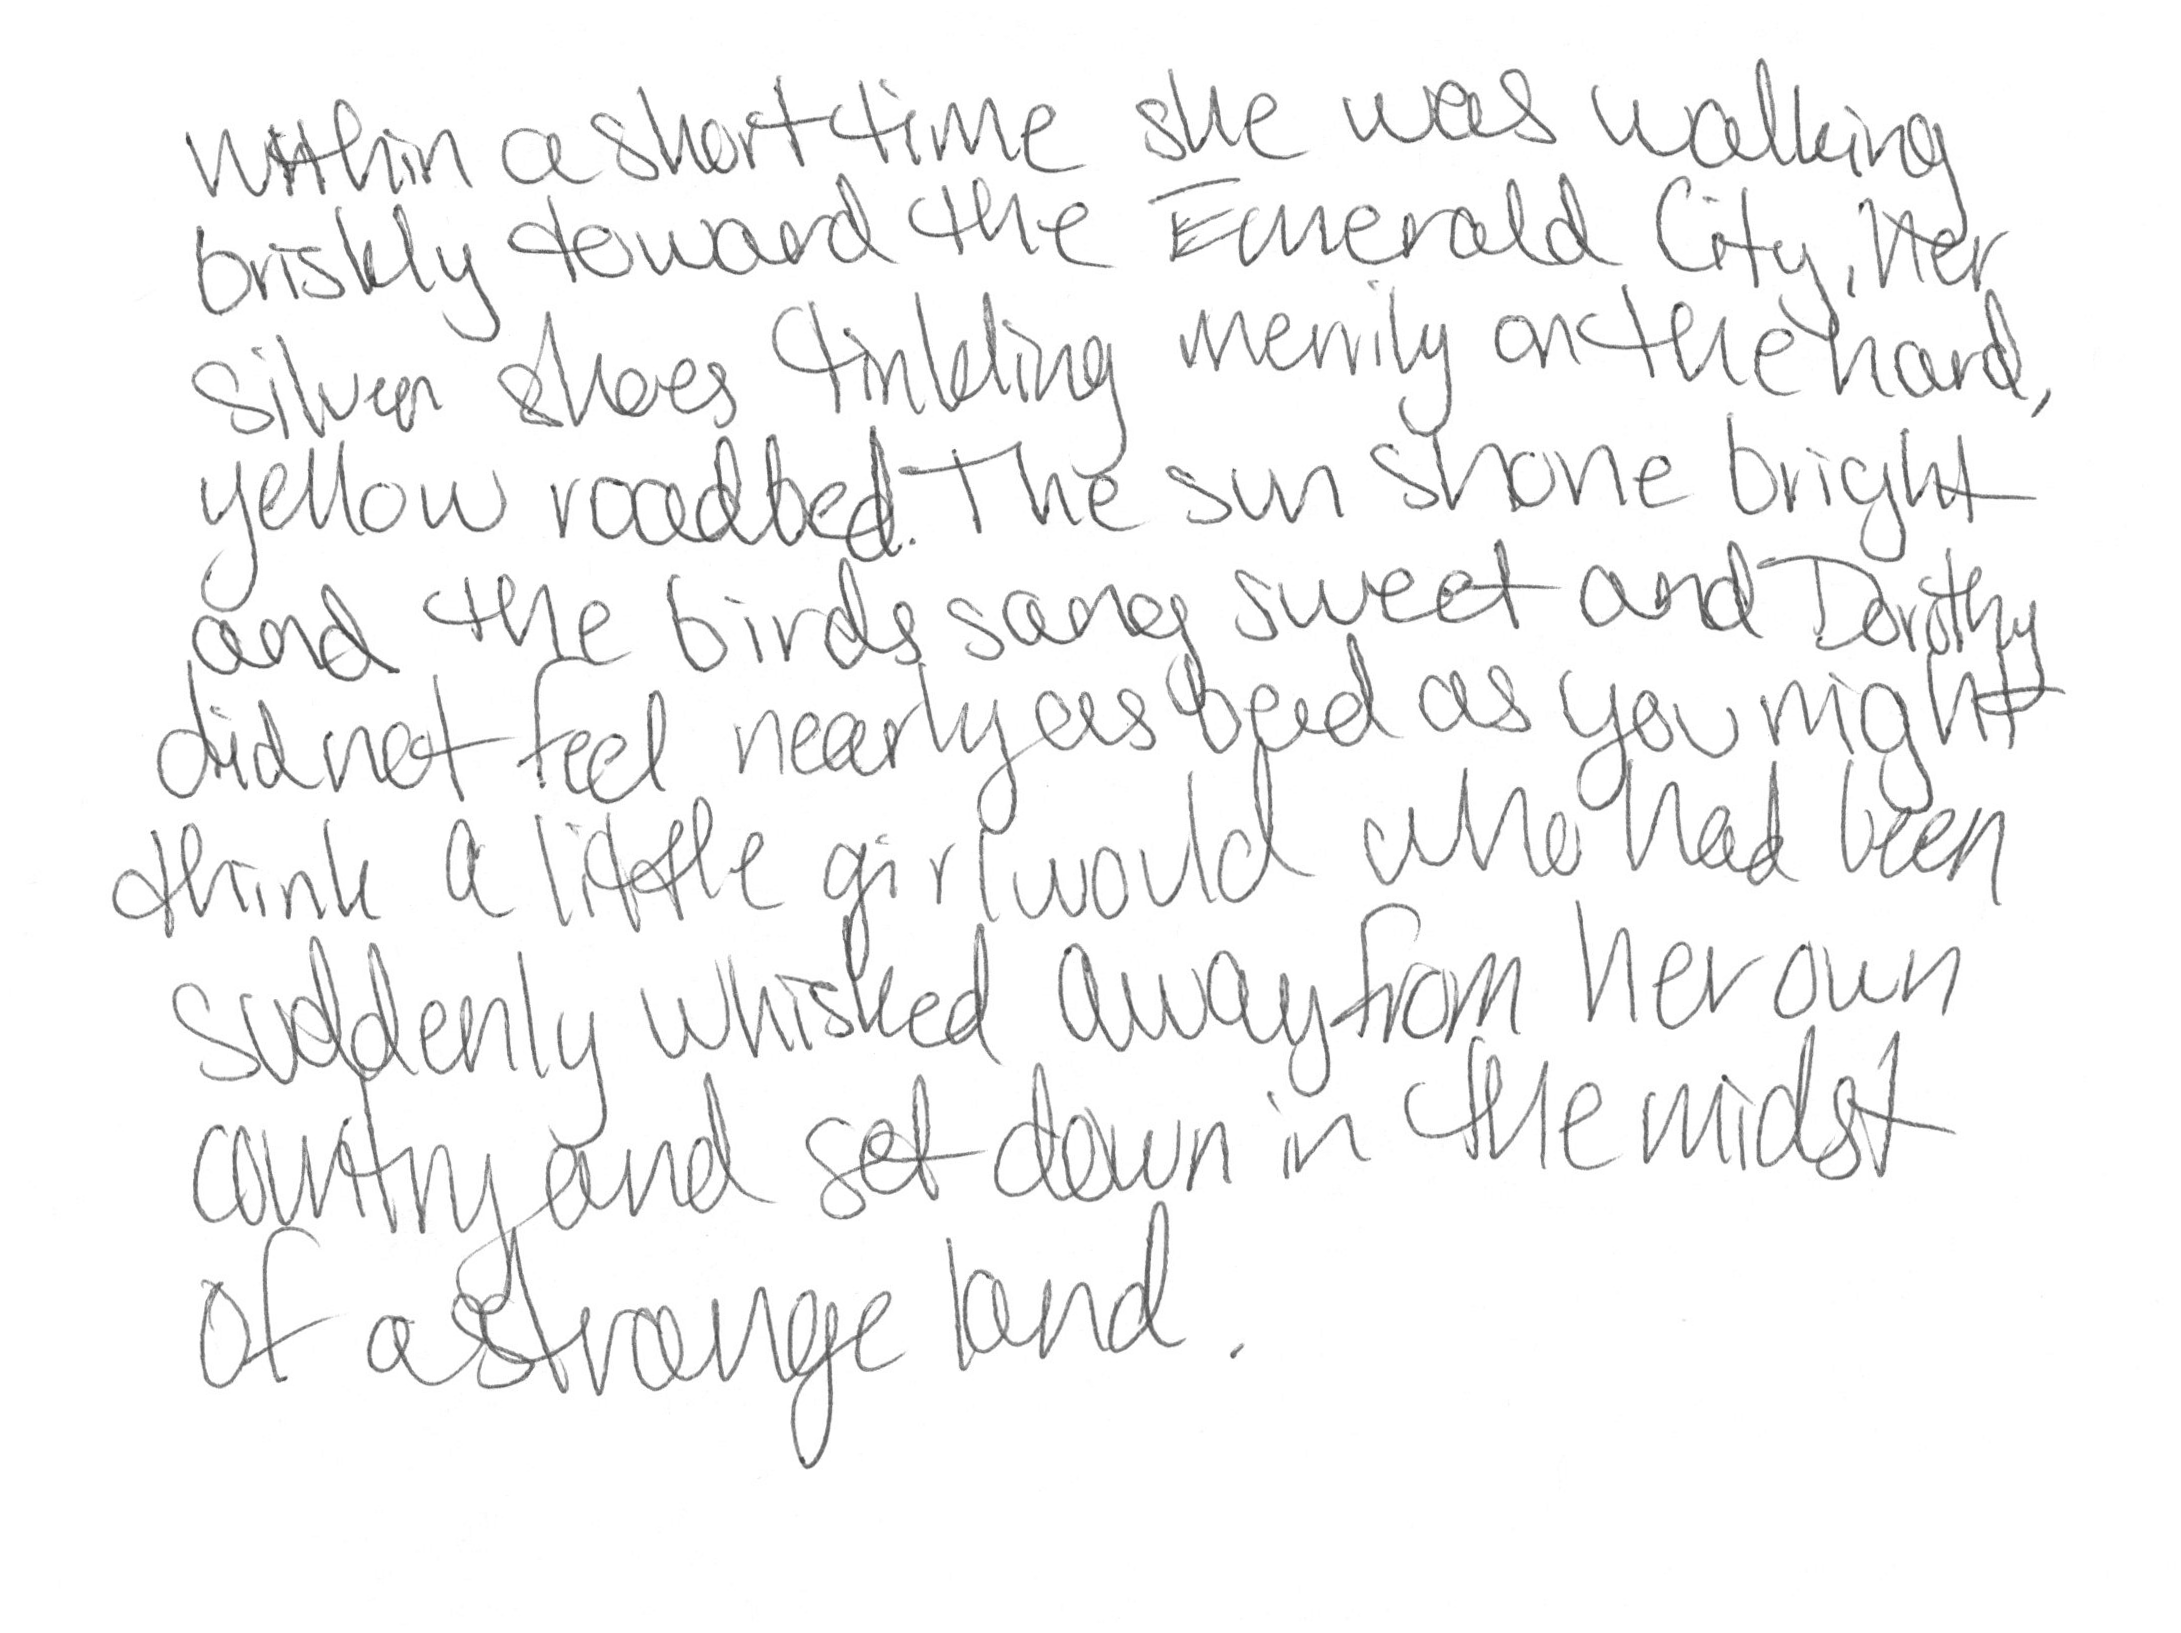 Within a short time she was walking
briskly toward the Emerald City, Her
silver shoes tinkling merrily on the hard,
yellow roadbed. The sun shone bright
and the birds sang sweet and Dorothy
did not feel nearly as bad as you might
think a little girl would who had been
suddenly whisked away from her own
country and set down in the midst
of a strange land.